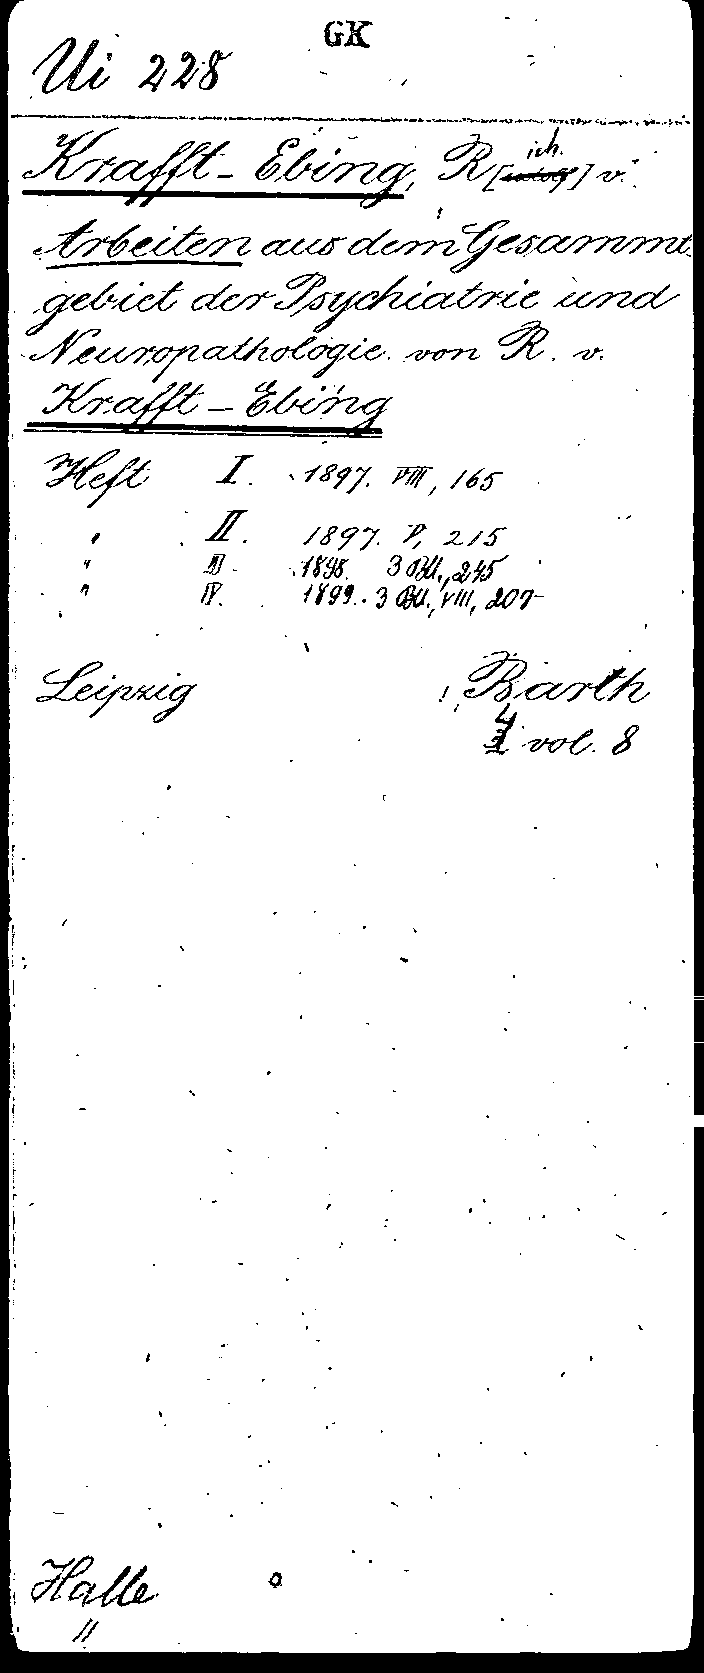 GK
Ui 228
Krafft-Ebing, R[ich.] v.
Arbeiten aus dem Gesammt-
gebiet der Psychiatrie und
Neuropathologie. von R. v.
Krafft-Ebing
Heft I. 1897. VIII, 165
" II. 1897. V, 215
" III. 1898. 3 Bll., 245
" IV. 1899. 3 Bll., VIII, 207
Leipzig Barth
4 vol. 8
Halle
"